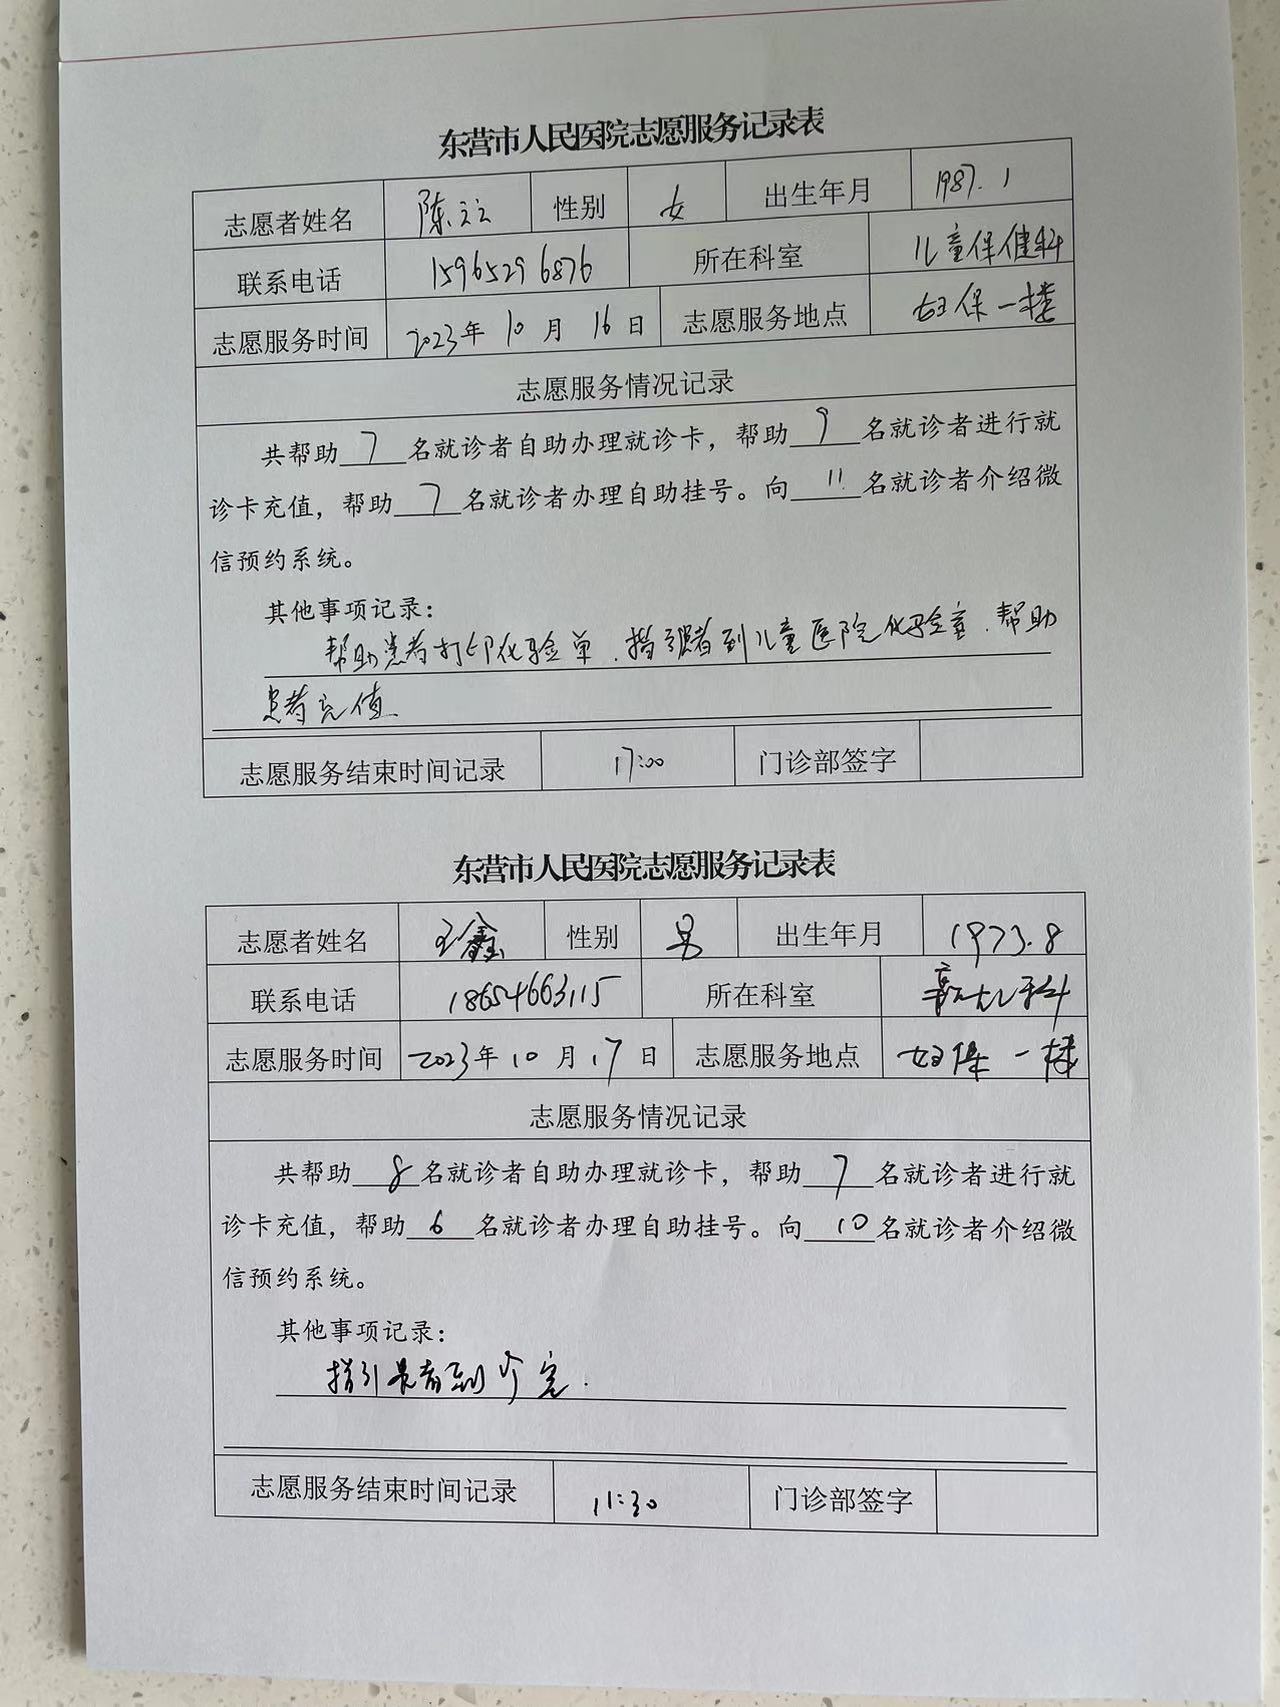 东营市人民医院志愿服务记录表
志愿者姓名 陈立立 性别 女 出生年月 1987.1
联系电话 15965296876 所在科室 儿童保健科
志愿服务时间 2023年10月16日 志愿服务地点 妇保一楼
志愿服务情况记录
共帮助7名就诊者自助办理就诊卡，帮助9名就诊者进行就
诊卡充值，帮助7名就诊者办理自助挂号。向11名就诊者介绍微
信预约系统。
其他事项记录：
帮助患者打印化验单.指引患者到儿童医院化验室.帮助
患者充值
志愿服务结束时间记录 17:00 门诊部签字
东营市人民医院志愿服务记录表
志愿者姓名 王鑫 性别 男 出生年月 1973.8
联系电话 18654663115 所在科室 新儿科
志愿服务时间 2023年10月17日 志愿服务地点 妇保一楼
志愿服务情况记录
共帮助8名就诊者自助办理就诊卡，帮助7名就诊者进行就
诊卡充值，帮助6名就诊者办理自助挂号。向10名就诊者介绍微
信预约系统。
其他事项记录：
指引患者到
志愿服务结束时间记录 11:30 门诊部签字